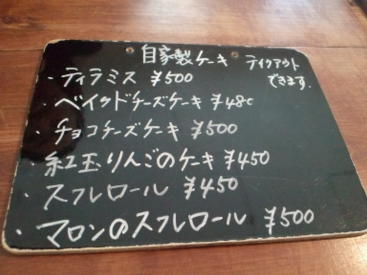 自家製ケーキ テイクアウト
できます.
・ティラミス ¥500
・ベイクドチーズケーキ ¥480
・チョコチーズケーキ ¥500
・紅玉りんごのケーキ ¥450
・スフレロール ¥450
・マロンのスフレロール ¥500